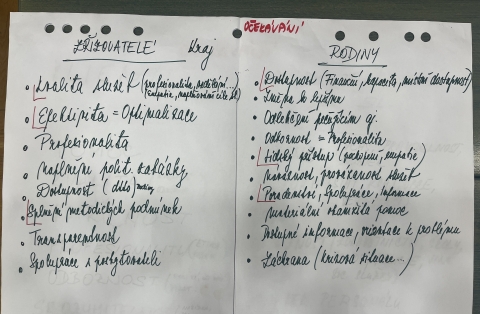 OČEKÁVÁNÍ
ZŘIZOVATELÉ Kraj
• kvalita služeb (profesionalita, počítání...
empatie, naplňování cíle sl.
• Efektivita = Optimalizace
• Profesionalita
• naplnění polit. zakázky
• Dostupnost (dětí)
• Splnění metodických podmínek
• Transparentnost
• Spolupráce s poskytovateli
RODINY
• Dostupnost (Finanční, kapacita, místní dostupnost)
• Změna k lepšímu
• Odlehčení pečujícím aj.
• Odbornost = Profesionalita
• Lidský přístup (pochopení, empatie)
• návaznost, provázanost služeb
• Poradenství, Spolupráce, Informace
• materiální okamžitá pomoc
• Dostupné informace, orientace k problému
• Záchrana (krizová situace...)